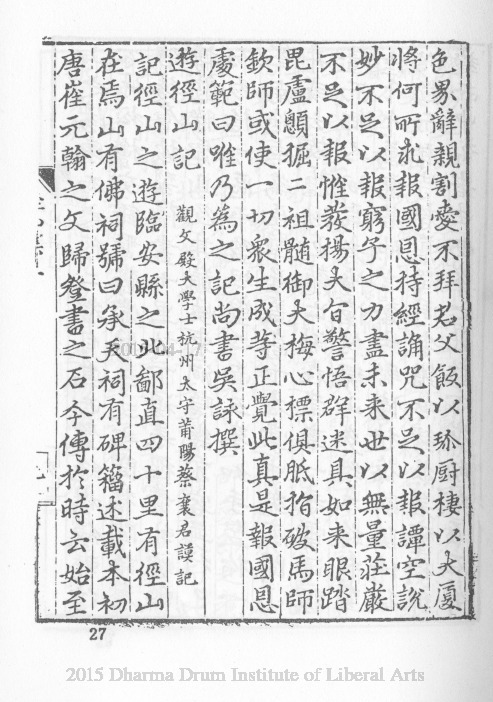 色界辭親割愛不拜君父飯以珎厨棲以大厦
將何所求報國恩持經誦咒不足以報譚空說
妙不足以報窮子之力盡未来世以無量莊嚴
不足以報惟發揚大百警悟群迷具如来眼踏
毘盧顖掘二祖髄御大梅心標俱胝指破馬師
欽師或使一切衆生成等正覺此真是報國恩
處範曰唯乃為之記尚書吳詠撰
遊徑山記 觀文殿大學士杭州太守莆陽蔡襄君謨記
記徑山之遊臨安縣之北鄙直四十里有徑山
在焉山有佛祠號曰承天祠有碑籀述載本初
唐崔元翰之文歸登書之石今傳於時云始至
27
2015 Dharma Drum Institute of Liberal Arts